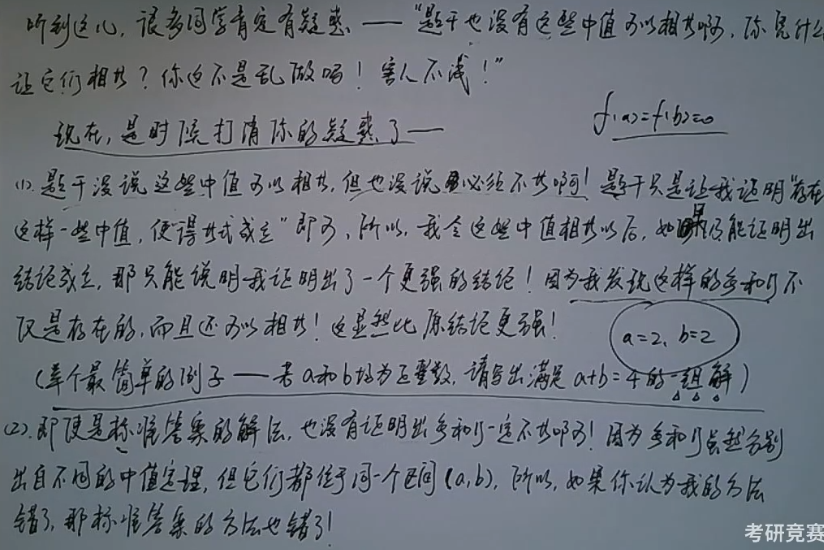 听到这儿，很多同学肯定有疑惑 ——“题干也没有这些中值可以相等啊，你凭什么
让它们相等？你这不是乱做吗！害人不浅！”
现在，是时候打消你的疑惑了——
f(a)=f(b)=0
(1). 题干没说这些中值可以相等，但也没说必须不等啊！题干只是让我证明“存在
这样一些中值，使得等式成立”即可，所以，我令这些中值相等以后，如果能证明出
结论成立，那只能说明我证明出了一个更强的结论！因为我发现这样的ξ和η不
仅是存在的，而且还可以相等！这显然比原结论更强！
a=2, b=2
(举个最简单的例子 —— 若a和b均为正整数，请写出满足a+b=4的一组解)
(2). 即便是标准答案的解法，也没有证明出ξ和η一定不等啊！因为ξ和η虽然分别
出自不同的中值定理，但它们都位于同一个区间(a,b)，所以，如果你认为我的方法
错了，那标准答案的方法也错了！
考研竞赛